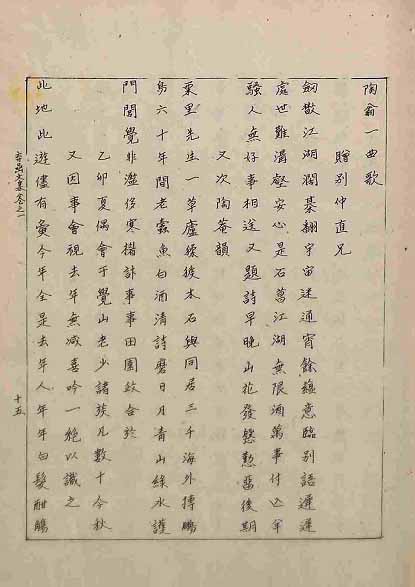 陶翁一曲歌
贈別仲直兄
劒散江湖濶碁翻宇宙迷通宵餘蘊意臨别語遲遲
處世難渴壑安心是石萬江湖無限酒萬事付亡羊
騷人無好事相送又題詩早晚山花發慇懃舊後期
又次陶菴韻
東里先生一草廬緣彼木石與同居三千海外摶鵬
鳥六十年間老蠹魚白酒清詩磨日月青山綠水護
門閭覺非濫侶寒棲計事事田園政合於
乙卯夏偶會于覺山老少諸族凡數十今秋
又因事會視去年無减喜吟一絶以識之
此地此遊儘有彙今年全是去年人年年白髮酣觴
本嵒文集卷之一
十五